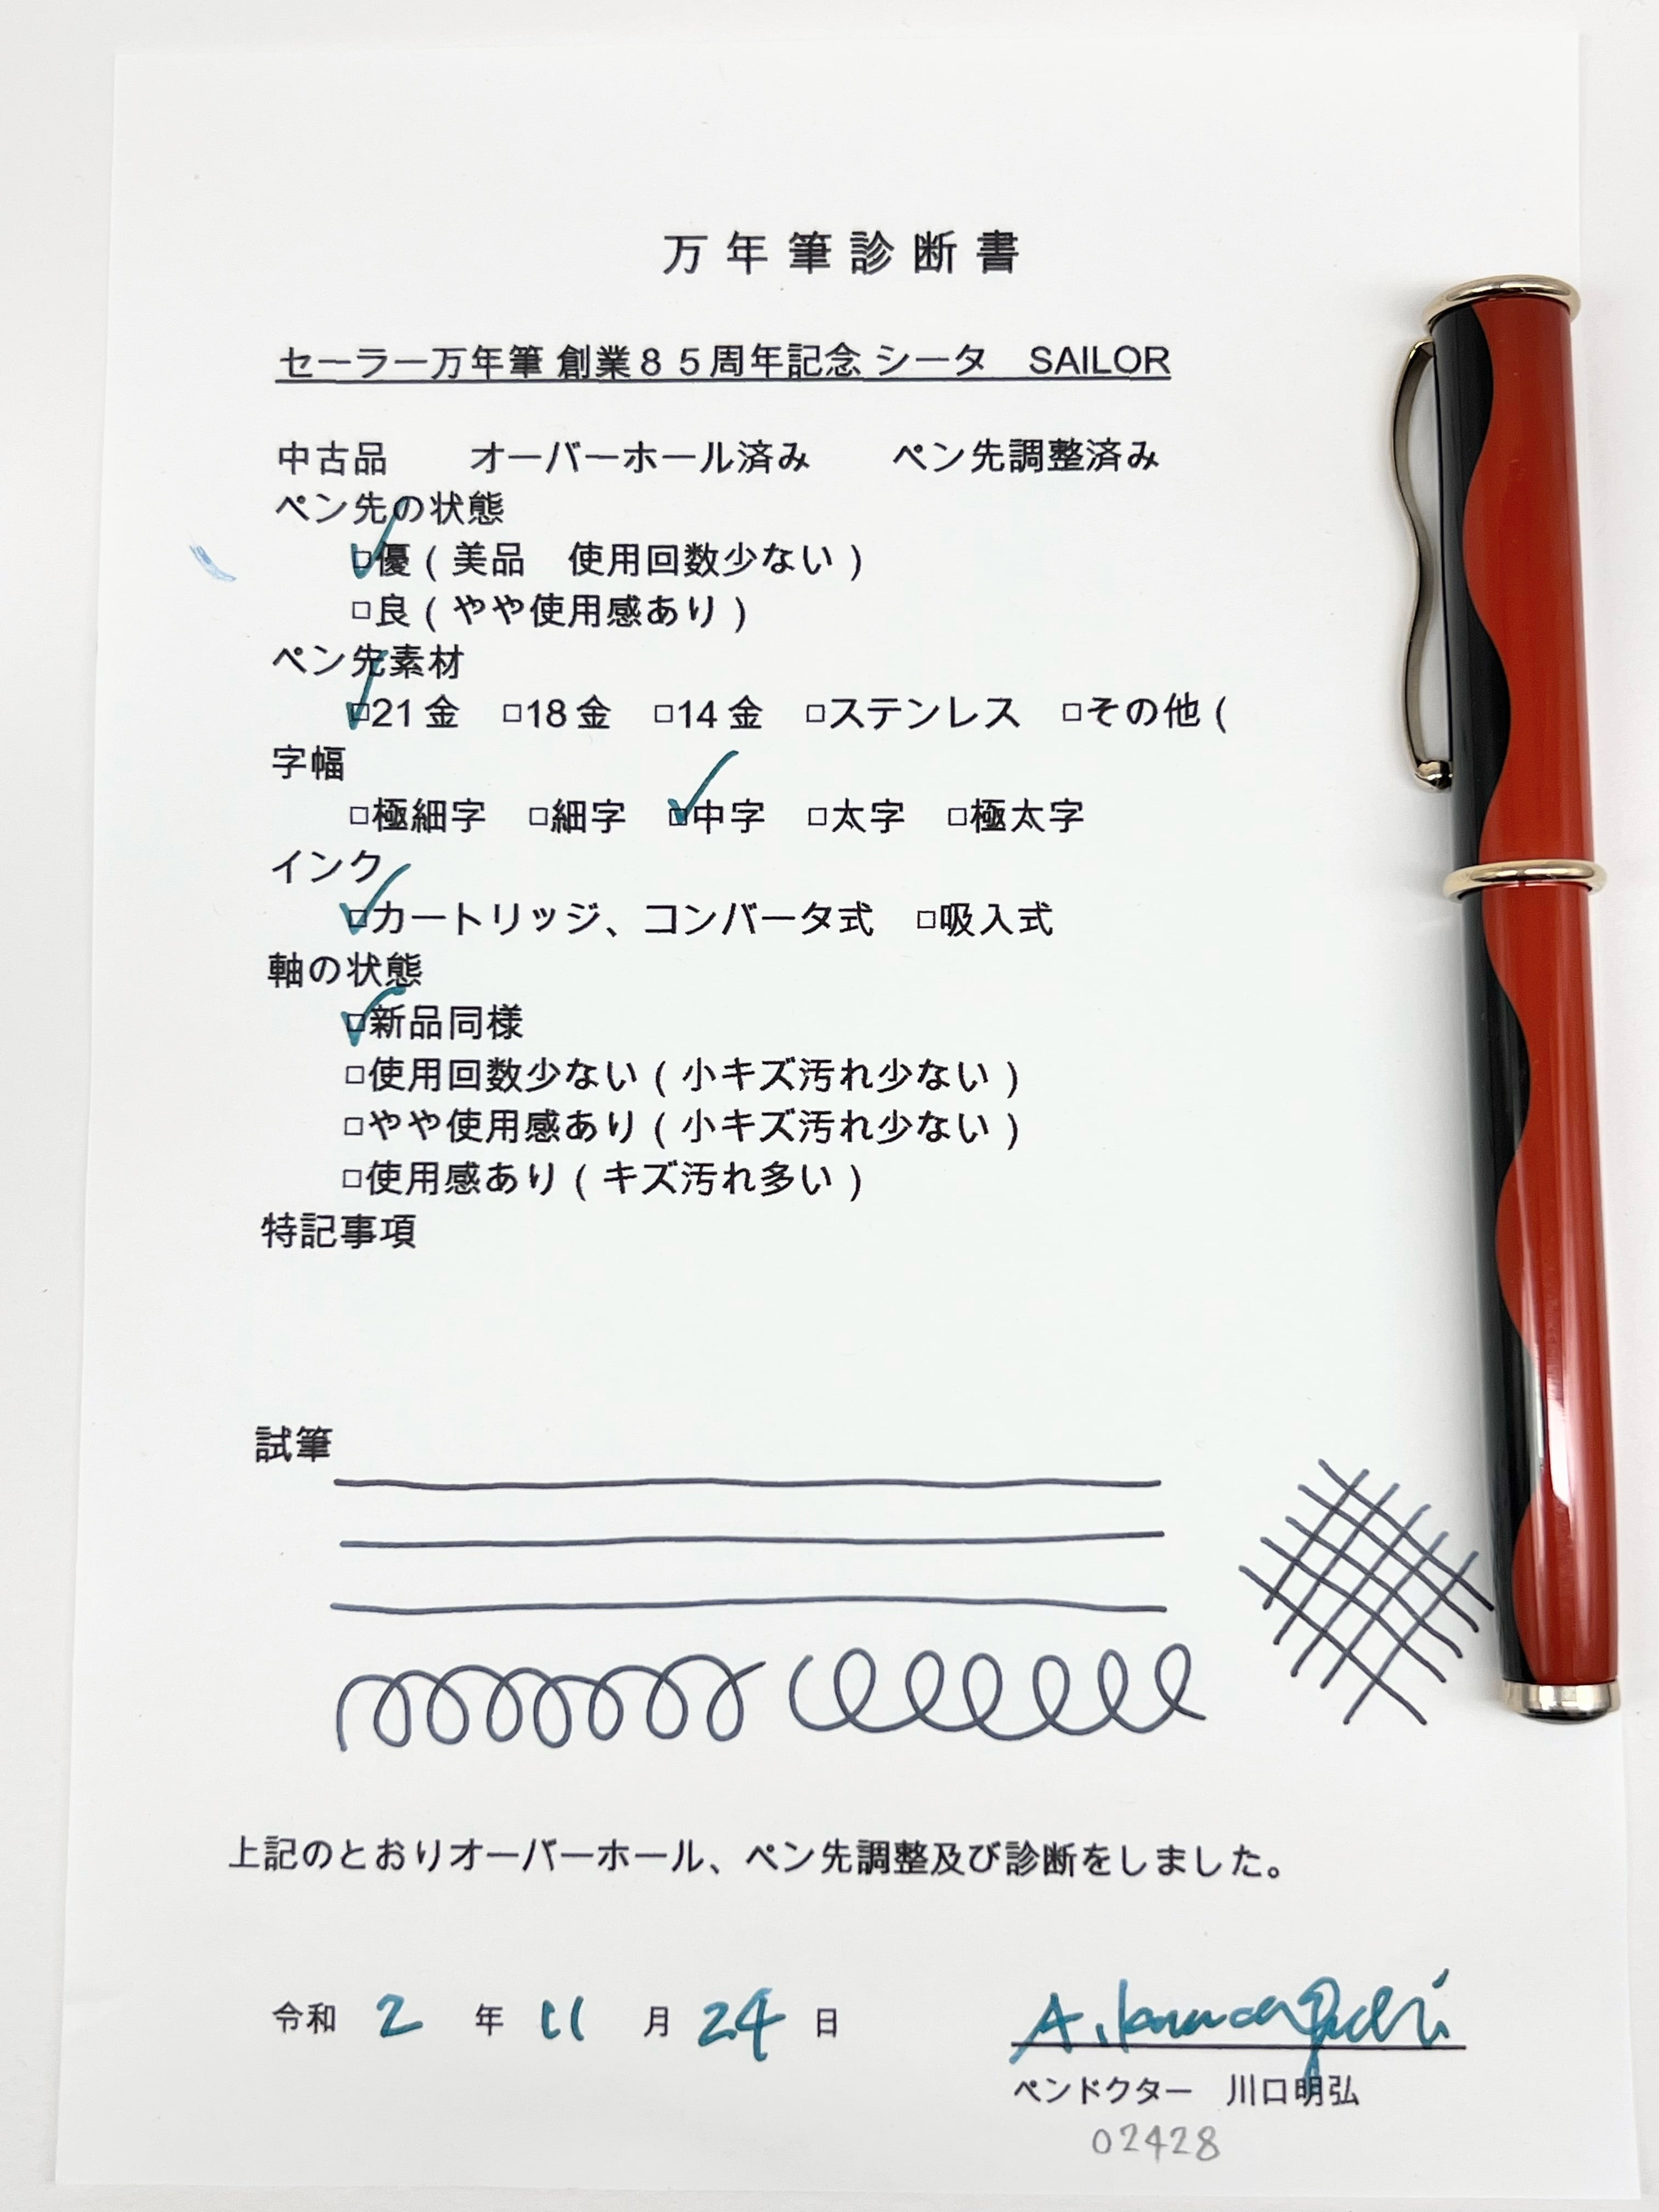 万年筆診断書
セーラー万年筆 創業８５周年記念 シータ　SAILOR
中古品　　オーバーホール済み　　ペン先調整済み
ペン先の状態
□優（美品　使用回数少ない）
□良（やや使用感あり）
ペン先素材
□21金　□18金　□14金　□ステンレス　□その他（
字幅
□極細字　□細字　□中字　□太字　□極太字
インク
□カートリッジ、コンバータ式　□吸入式
軸の状態
□新品同様
□使用回数少ない（小キズ汚れ少ない）
□やや使用感あり（小キズ汚れ少ない）
□使用感あり（キズ汚れ多い）
特記事項
試筆
上記のとおりオーバーホール、ペン先調整及び診断をしました。
令和 2 年 11 月 24 日
A. Kawaguchi
ペンドクター　川口明弘
02428